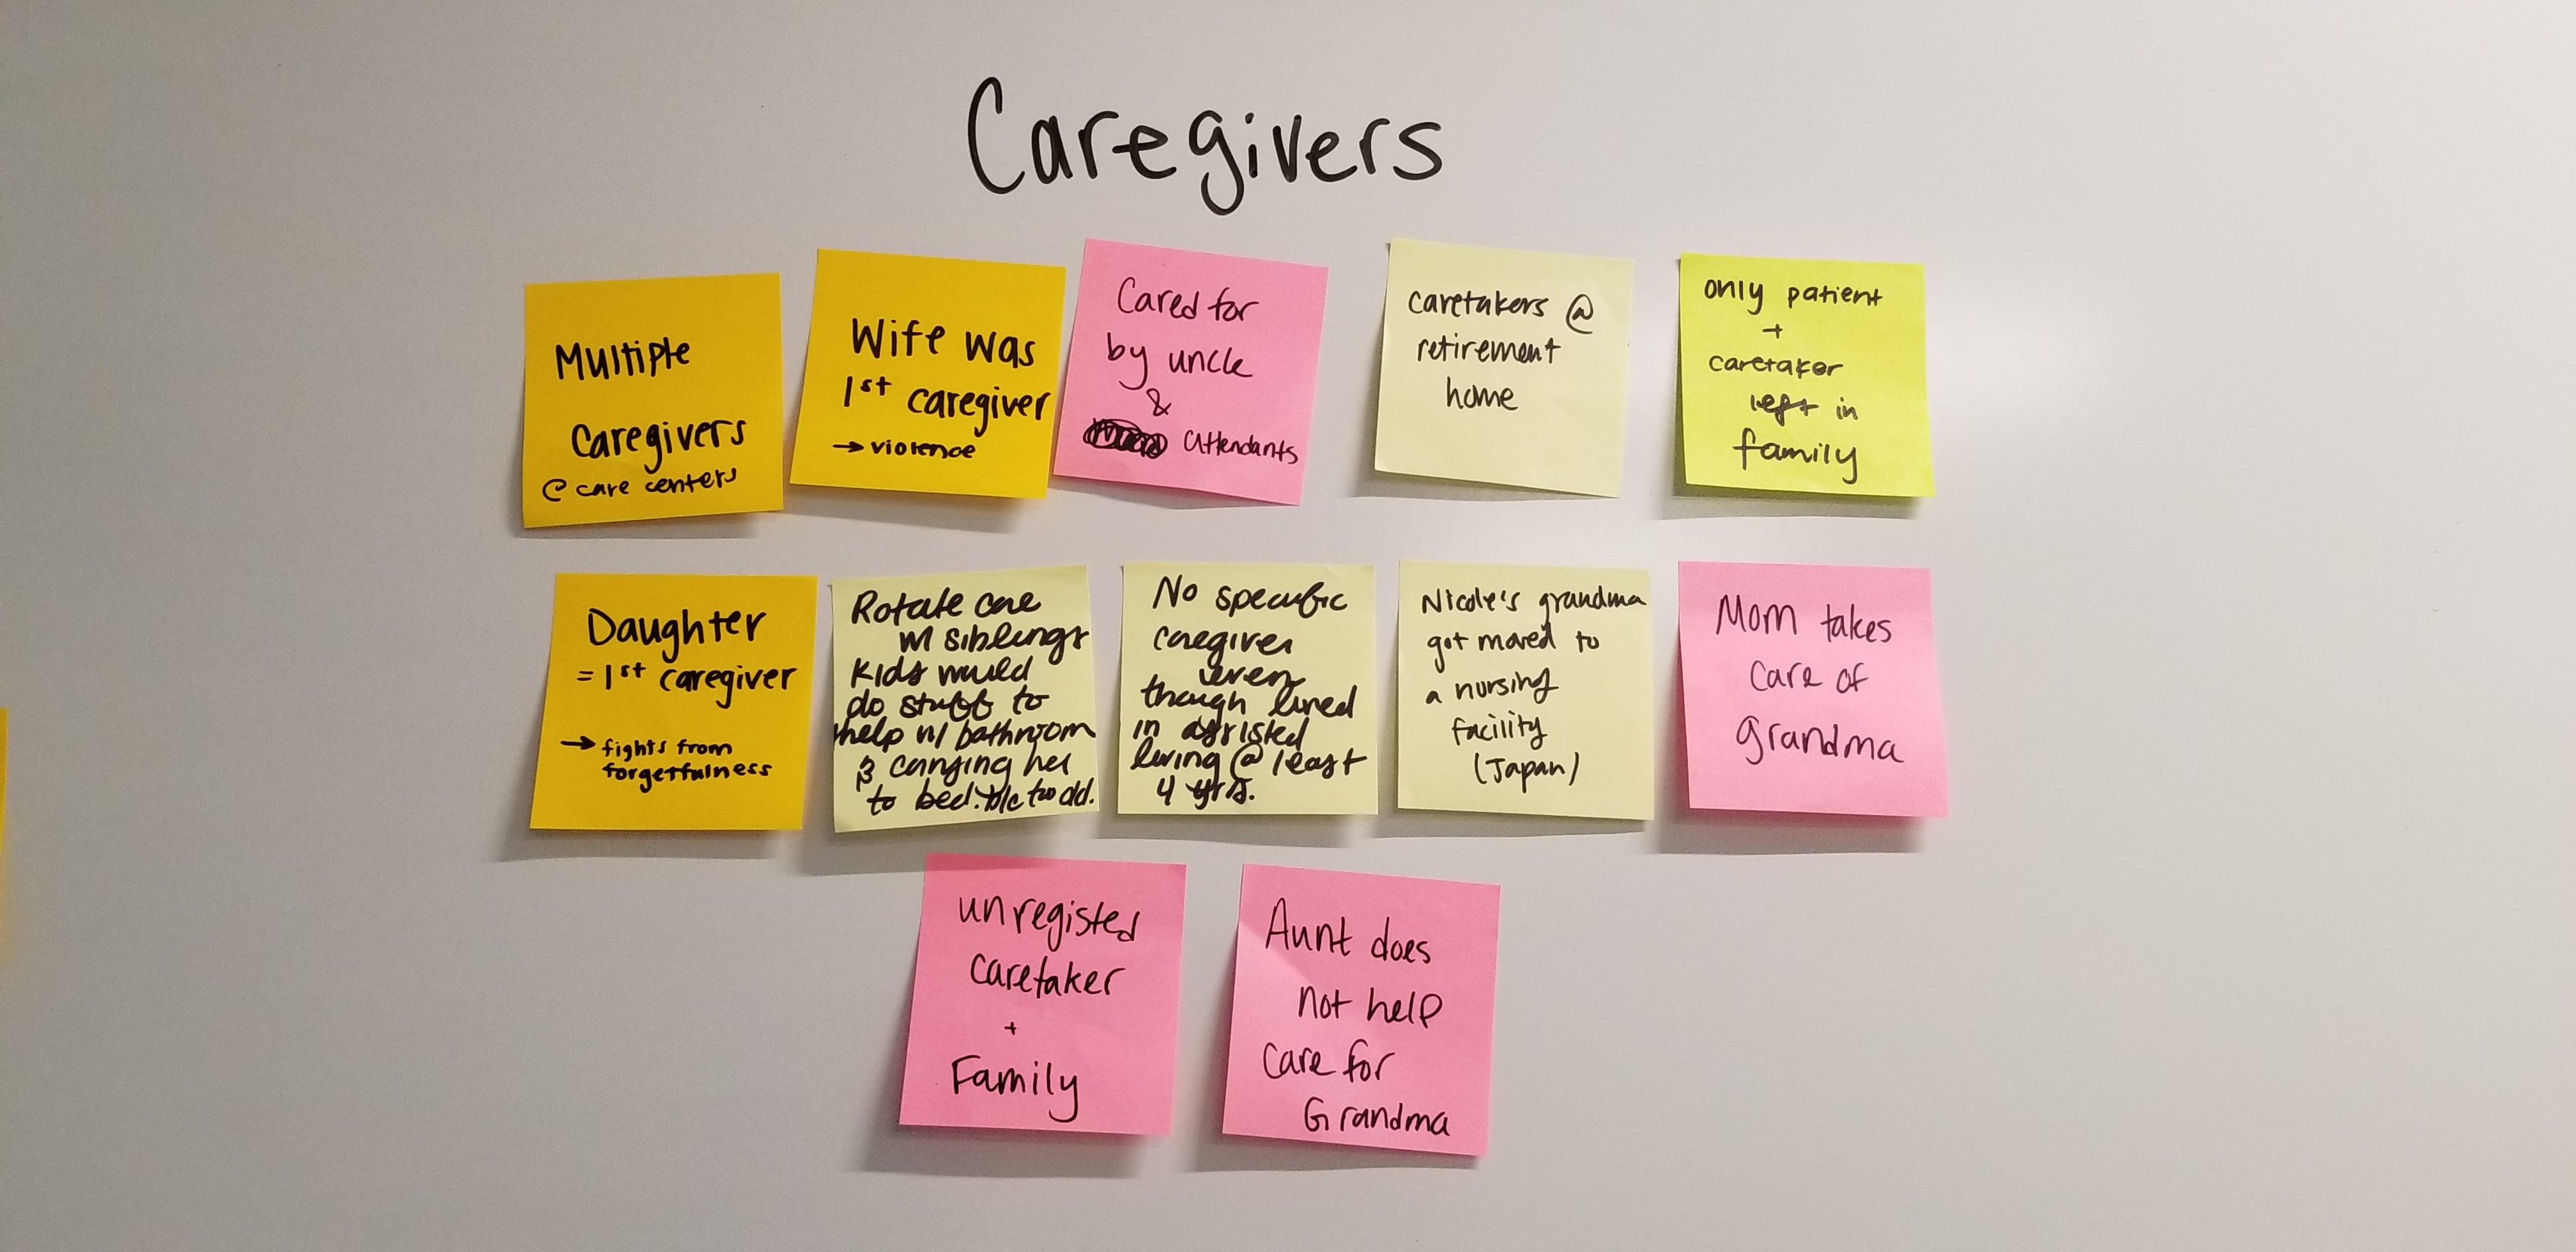 Caregivers
Multiple
Caregivers
@ care centers
Wife was
1st caregiver
→ violence
Cared for
by uncle
&
Attendants
caretakers @
retirement
home
only patient
+
caretaker
left in
family
Daughter
= 1st caregiver
→ fights from
forgetfulness
Rotate care
w/ siblings
Kids would
do stuff to
help w/ bathroom
& carrying her
to bed. b/c too old.
No specific
caregiver
even
though lived
in assisted
living @ least
4 yrs.
Nicole's grandma
got moved to
a nursing
facility
(Japan)
Mom takes
care of
grandma
unregisted
caretaker
+
Family
Aunt does
not help
care for
Grandma